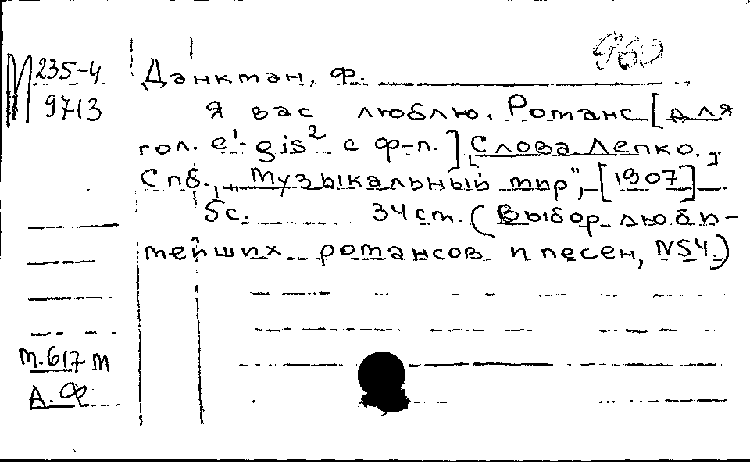 960
М 235-4
9713
Данкман, Ф.
Я вас люблю. Романс [для
гол. e¹-gis² с ф-п.] Слова Лепко.
Спб., „Музыкальный мир", [1907]
5с. 34 см. (Выбор люби-
мейших романсов и песен, №54.)
м. 617 м
А. Ф